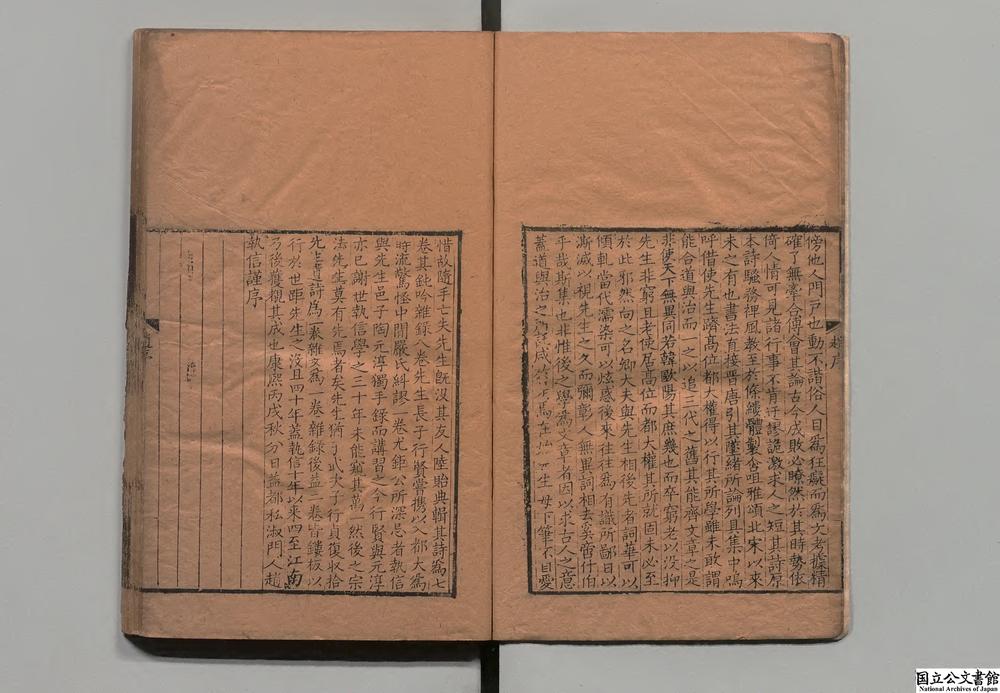 傍他人門戸也動不諧俗人目為狂癡而為文考據精
確了無牽合傅會其論古今成敗必瞭然於其時勢依
倚人情可見諸行事不肯迂謬詭激求人之短其詩原
本詩騷務裨風教至於條纖體製含咀雅頌北宋以來
未之有也書法直接晉唐引其墜緒所論列且集中嗚
呼借使先生躋高位都大權得以行其所學雖未敢謂
能合道與治而一之以追三代之舊其能齊文章之是
非使天下無異同若韓歐陽其庶幾也而卒窮老以沒抑
先生非窮且老使居高位而都大權其所就固未必至
於此邪然向之名卿大夫與先生相後先者詞華可以
傾軋當代濡染可以炫惑後來往往為有識所鄙日以
澌滅以視先生之久而彌彰人無異詞相去奚啻什伯
乎哉斯集也非惟後之學為文章者因以求古人之意
蓋道與治之 咸 焉 先生 毋下筆不自愛
惜故隨手亡失先生旣沒其友人陸貽典輯其詩為七
卷其鈍吟雜錄八卷先生長子行賢嘗攜以入都大為
時流驚怪中間嚴氏糾謬一卷尤鉅公所深忌者執信
與先生邑子陶元淳獨手錄而講習之今行賢與元淳
亦已謝世執信學之三十年未能窺其萬一然後之宗
法先生莫有先焉者矣先生猶子武夫子行貞復收拾
先生遺詩為 一集雜文為一卷雜錄後益二卷皆鏤板以
行於世距先生之沒且四十年蓋執信十年以來四至江南
乃後獲觀其成也康熙丙戌秋分日益都私淑門人趙
執信謹序
趙序